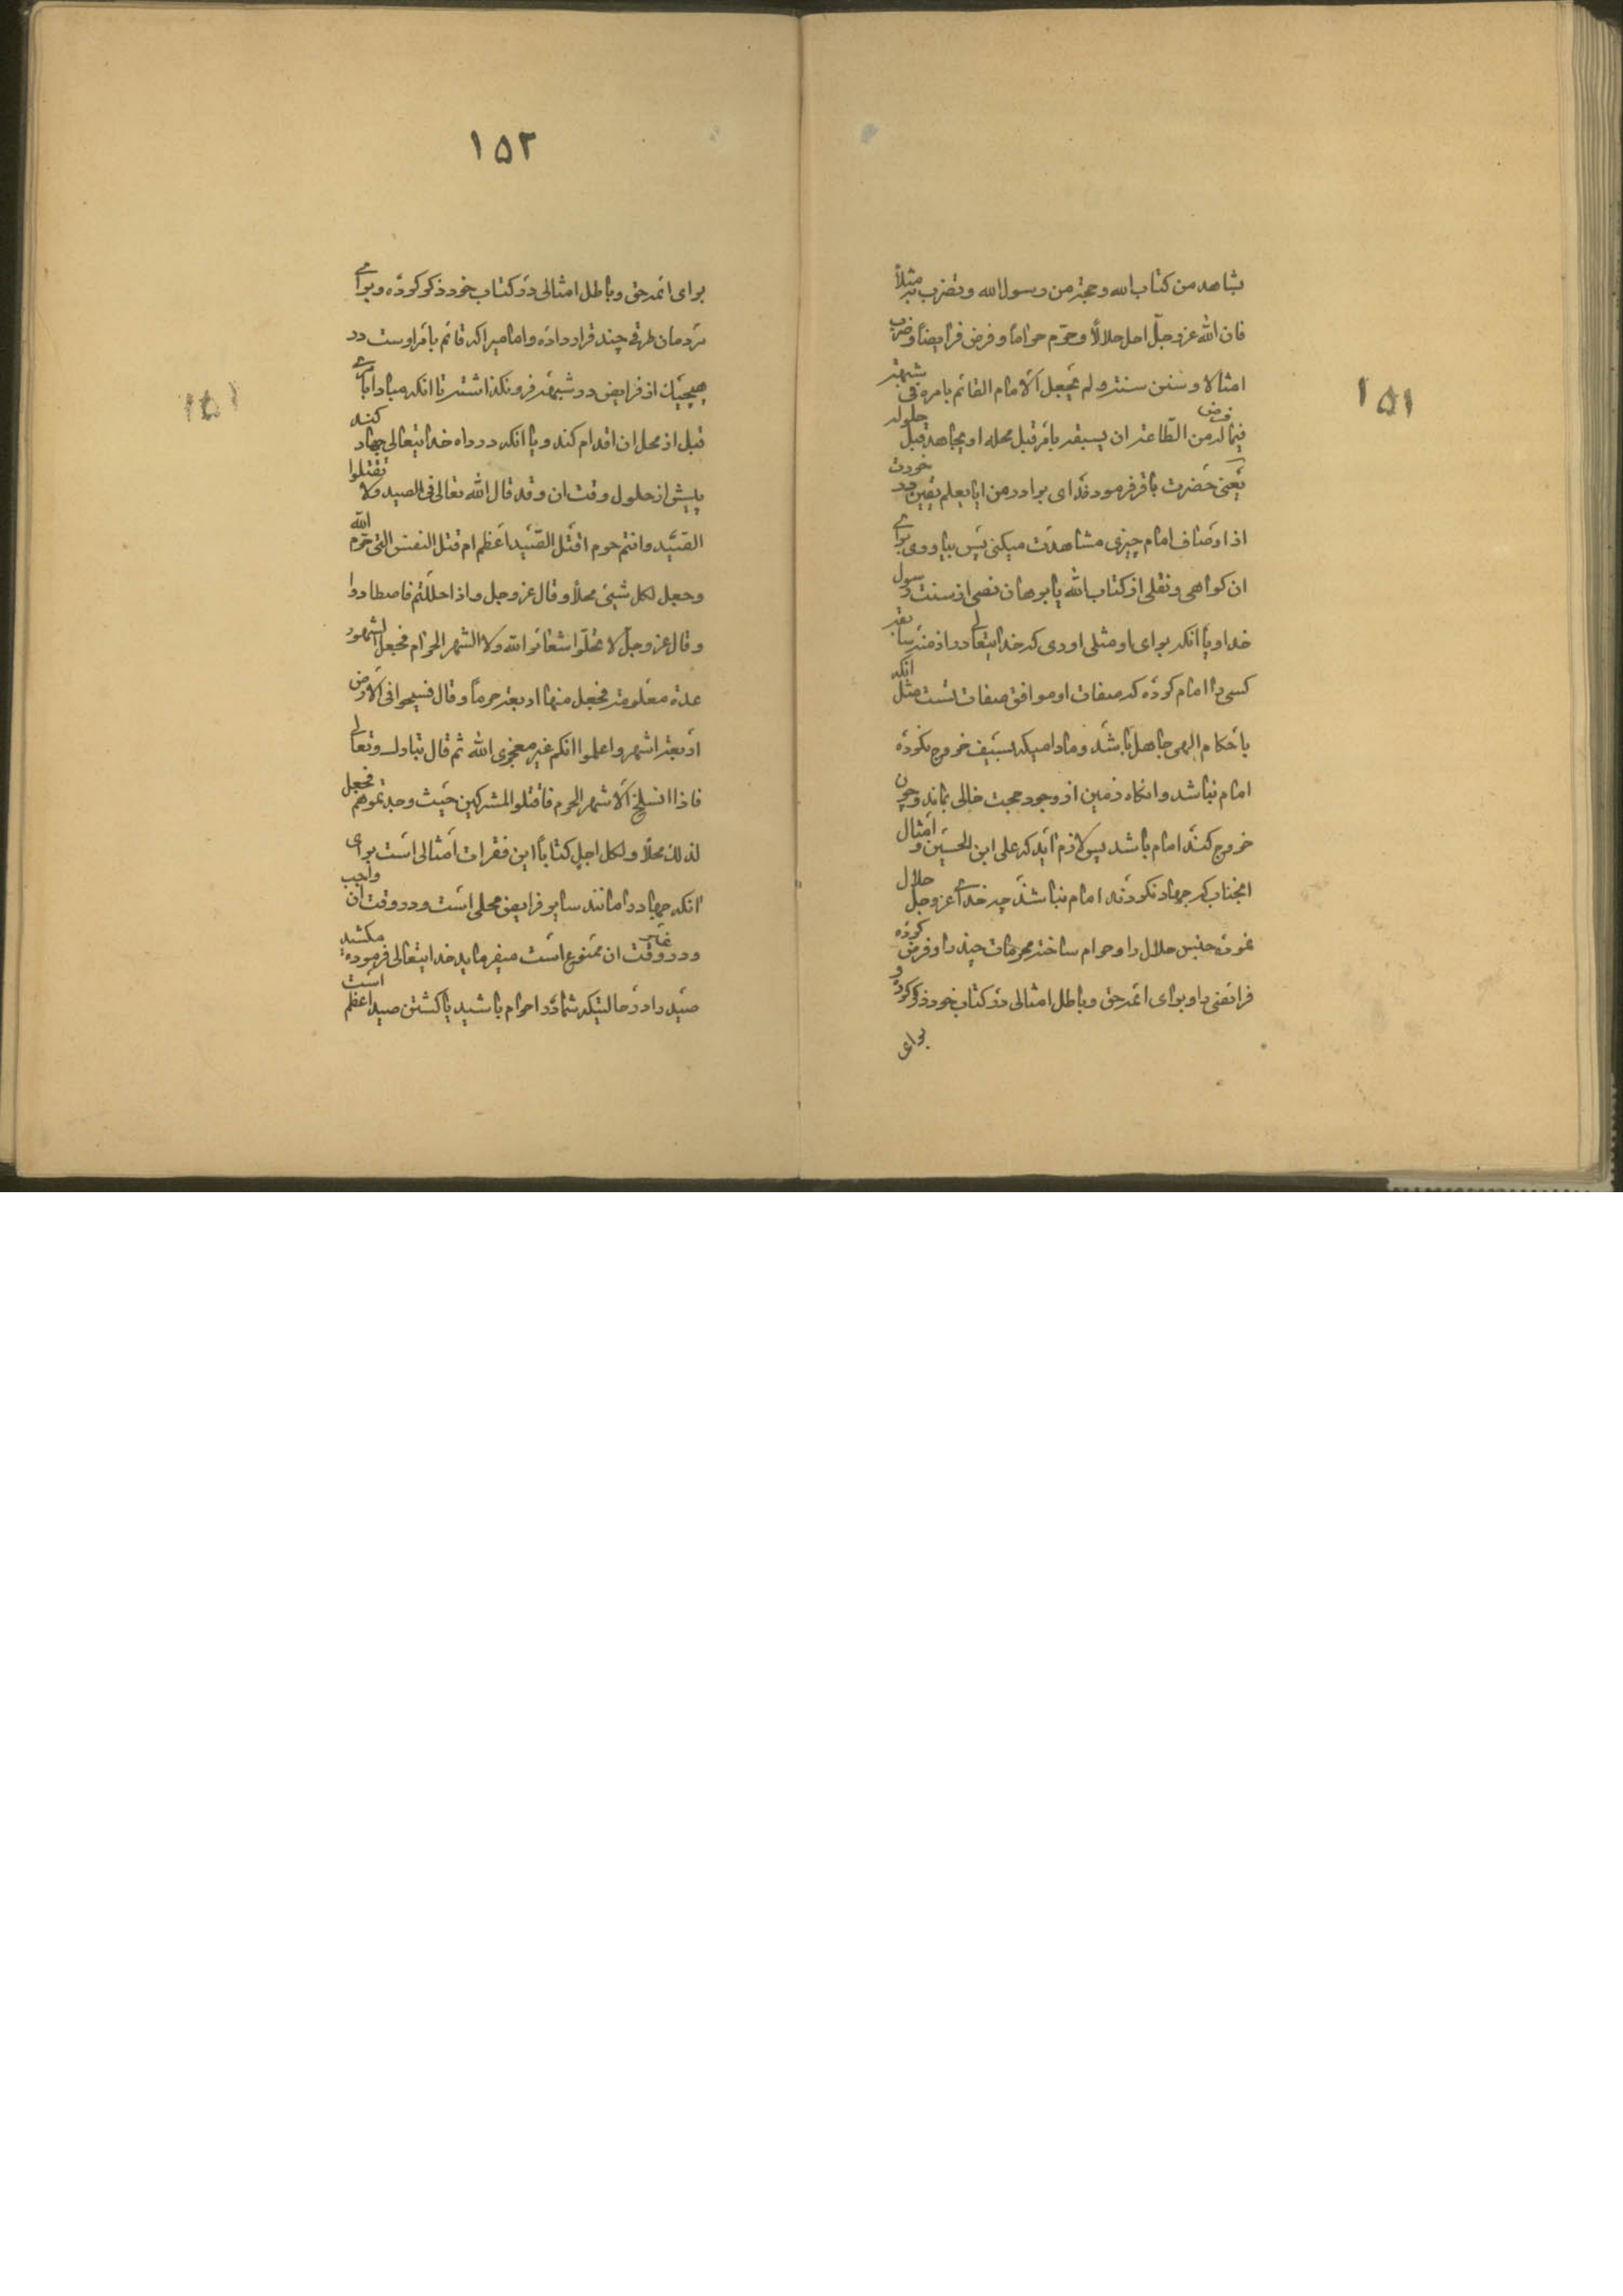 ۱۵۱
بشاهد من کتاب الله و حجة من رسول الله و تضرب به مثلاً
فان الله عزوجلّ احل حلالاً وحرّم حراماً و فرض فرایضاً وضرب
امثالا و سنن سنته ولم یجعل الامام القائم بامره فی شبهة
فیما فرض له من الطّاعة ان یسبقه بامر قبل محله او یجاهد قبل حلوله
یعنی حضرت باقر فرموده ای برادر من ایا بعلم یقین در خودت
از اوصاف امام چیزی مشاهدت میکنی پس بیاوری برای
ان کواهی و نقلی از کتاب الله یا برهان نصی از سنت رسول
خدا و یا آنکه برای او مثلی اوری که خدایتعالی در ازمنه سابقه
کسی را امام کرده که صفات او موافق صفات تست مثل انکه
باحکام الهی جاهل باشد و مادامیکه بسیف خروج نکرده
امام نباشد وانکاه زمین از وجود حجت خالی بماند و چون
خروج کند امام باشد پس لازم آید که علی ابن الحسین و امثال
انجناب که جهاد نکردند امام نباشند چه خدای عزوجل حلال
نموده جنس حلال را و حرام ساخته محرمات چند را و فرض کرده
فرائضی را و برای ائمه حق و باطل امثالی در کتاب خود ذکر کرده و
برای
۱۵۲
برای ائمه حق و باطل امثالی در کتاب خود ذکر کرده و برای
مردمان طرقی چند قرار داده و امامیرا که قائم بامر اوست در
هیچیک از فرایض در شبهه فرونکذاشته تا انکه مبادا بامری
قبل از محل ان اقدام کند و یا انکه در راه خدایتعالی جهاد کند
پیش از حلول وقت ان و قد قال الله تعالی فی الصید ولا تقتلوا
الصّید وانتم حرم اقتل الصّید اعظم ام قتل النفس التی حرّم الله
وجعل لکل شیئ محلاً وقال عزوجل واذا حللتم فاصطادوا
وقال عزوجلّ لا تحلّوا شعائر الله ولا الشهر الحرام فجعل الشهور
عدة معلومة فجعل منها اربعة حرماً وقال فسیحوا فی الارض
اربعة اشهر واعلموا انکم غیر معجزی الله ثم قال تبارک وتعالی
فاذا انسلخ الاشهر الحرم فاقتلوا المشرکین حیث وجدتموهم فجعل
لذلک محلاً ولکل اجل کتاباً این فقرات امثالی است برای
انکه جهاد را مانند سایر فرایض محلی است و در وقت ان واجب
و در غیر وقت ان ممنوع است میفرماید خدایتعالی فرموده مکشید
صید را در حالتیکه شما در احرام باشید یا کشتن صید اعظم است